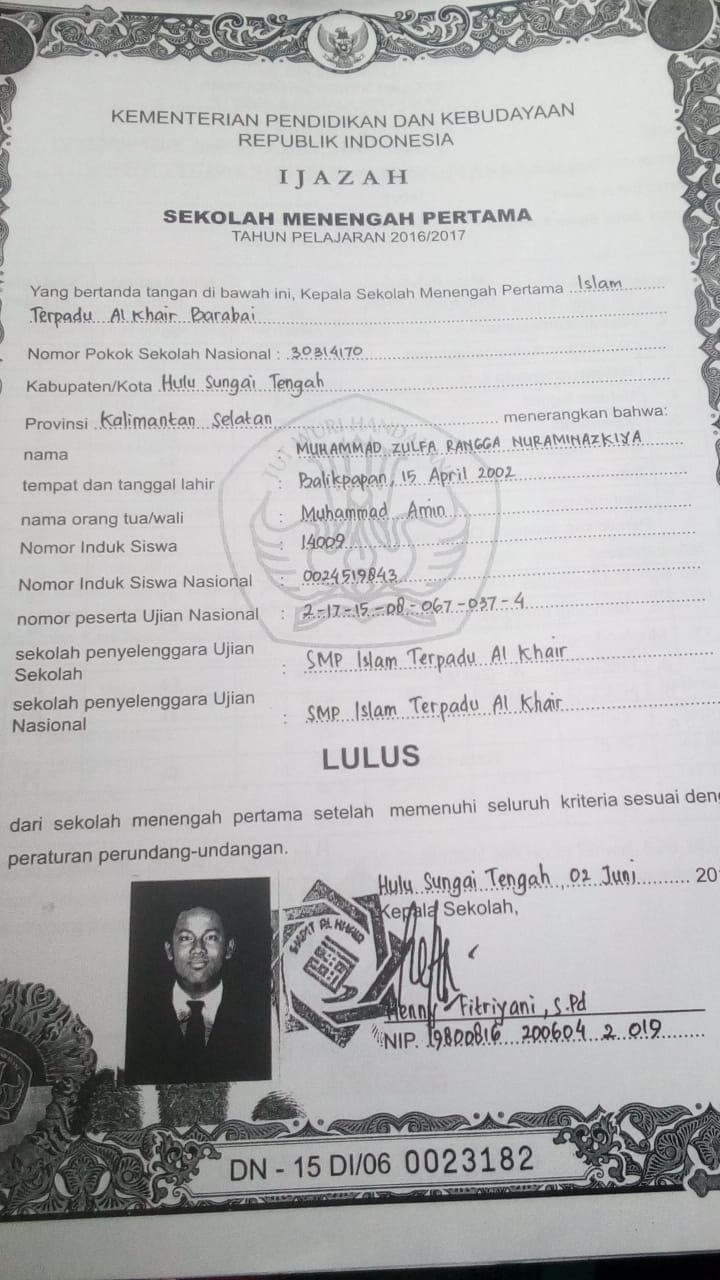 KEMENTERIAN PENDIDIKAN DAN KEBUDAYAAN
REPUBLIK INDONESIA
IJAZAH
SEKOLAH MENENGAH PERTAMA
TAHUN PELAJARAN 2016/2017
Yang bertanda tangan di bawah ini, Kepala Sekolah Menengah Pertama Islam
Terpadu Al Khair Barabai
Nomor Pokok Sekolah Nasional : 30314170
Kabupaten/Kota Hulu Sungai Tengah
Provinsi Kalimantan Selatan menerangkan bahwa:
nama : MUHAMMAD ZULFA RANGGA NURAMINAZKIYA
tempat dan tanggal lahir : Balikpapan, 15 April 2002
nama orang tua/wali : Muhammad Amin
Nomor Induk Siswa : 14009
Nomor Induk Siswa Nasional : 0024519843
nomor peserta Ujian Nasional : 2-17-15-08-067-037-4
sekolah penyelenggara Ujian
Sekolah : SMP Islam Terpadu Al Khair
sekolah penyelenggara Ujian
Nasional : SMP Islam Terpadu Al Khair
LULUS
dari sekolah menengah pertama setelah memenuhi seluruh kriteria sesuai
peraturan perundang-undangan.
Hulu Sungai Tengah, 02 Juni 20
Kepala Sekolah,
Henny Fitriyani, S.Pd
NIP. 19800816 200604 2 019
DN - 15 DI/06 0023182